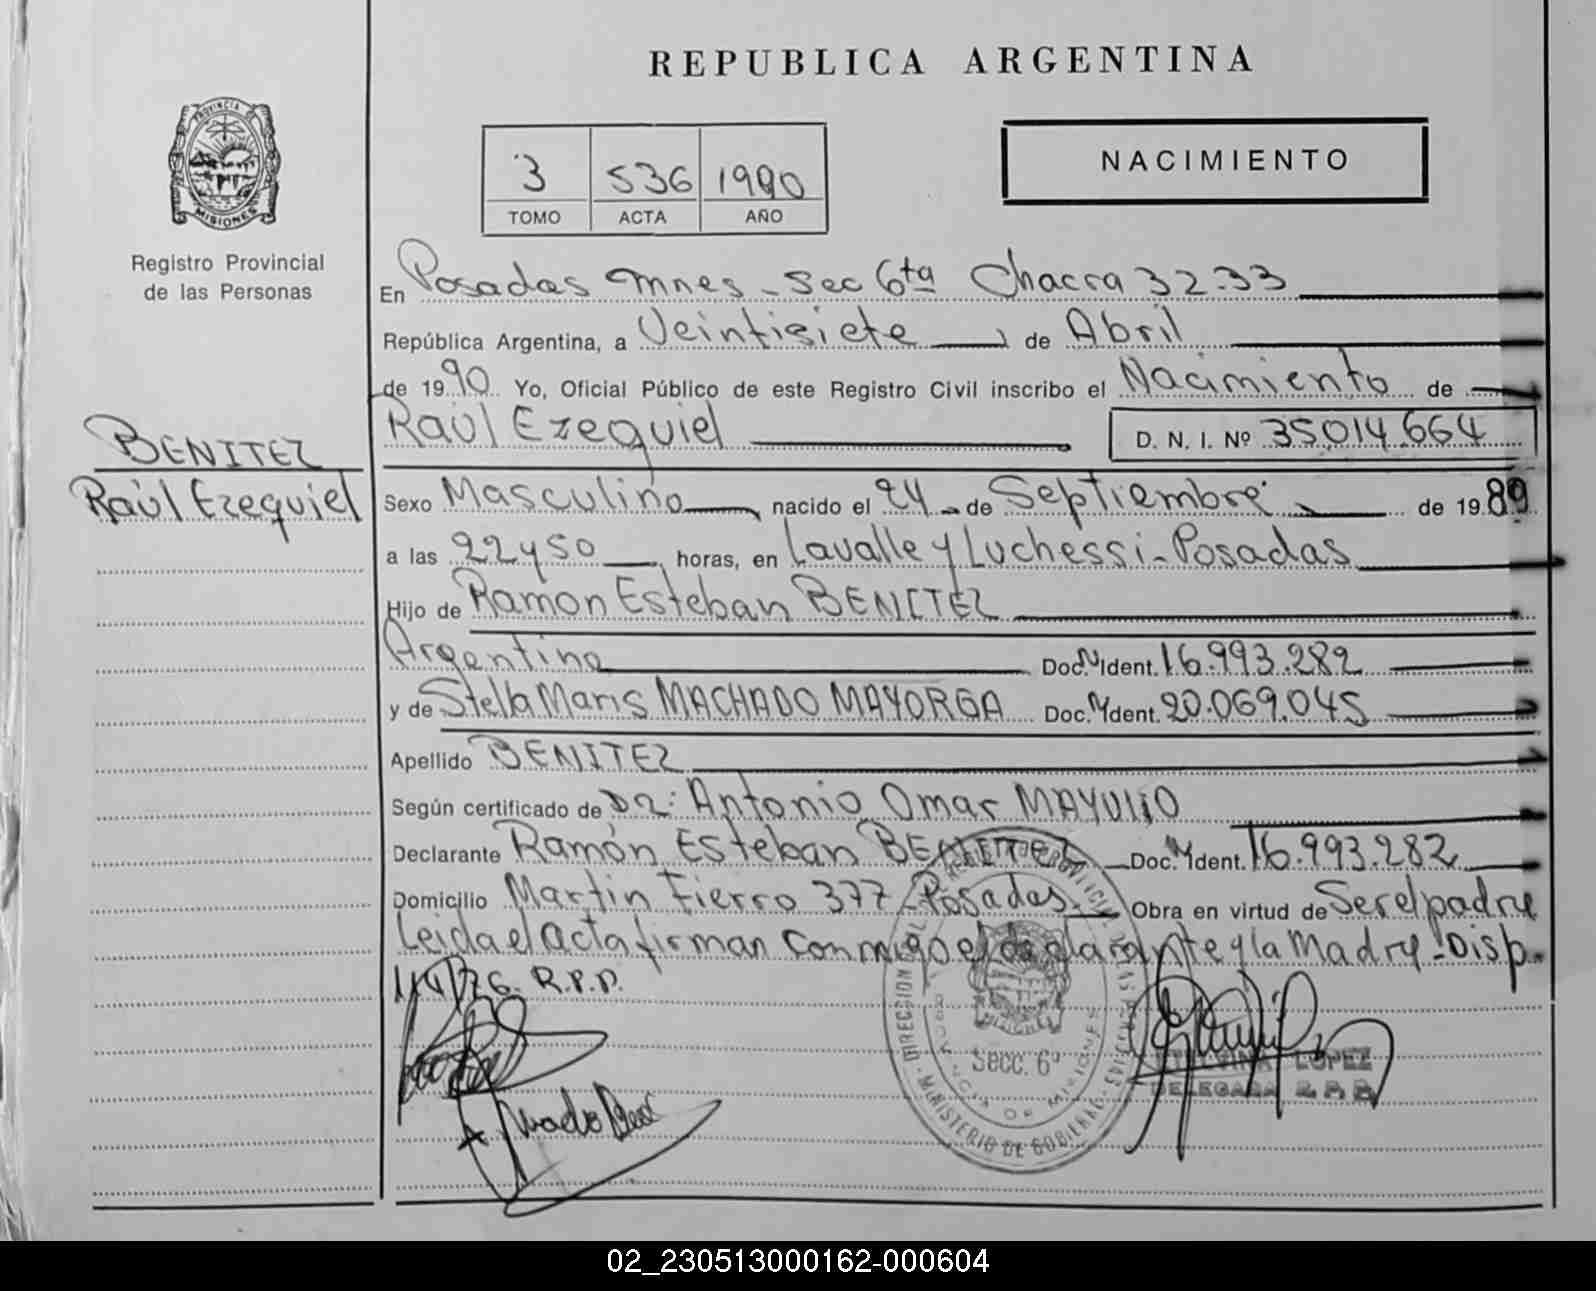 REPUBLICA ARGENTINA
PROVINCIA DE
MISIONES
Registro Provincial
de las Personas
3 536 1990
TOMO ACTA AÑO
NACIMIENTO
En Posadas Mnes - Sec 6ta Chacra 32-33
República Argentina, a Veintisiete de Abril
de 1990 Yo, Oficial Público de este Registro Civil inscribo el Nacimiento de
Raúl Ezequiel D. N. I. Nº 35014.664
BENITEZ
Raúl Ezequiel
Sexo Masculino nacido el 24 de Septiembre de 1989
a las 22 y 50 horas, en Lavalle y Luchessi - Posadas
Hijo de Ramon Esteban BENITEZ
Argentina Doc. N Ident. 16.993.282
y de Stella Maris MACHADO MAYORGA Doc. N Ident. 20.069.045
Apellido BENITEZ
Según certificado de Dr: Antonio Omar
Declarante Ramón Esteban BENITEZ Doc. N Ident. 16.993.282
Domicilio Martin Fierro 377 - Posadas Obra en virtud de Ser el padre
Leida el acta firman conmigo el declarante y la Madre - Disp.
R.P.P.
Secc. 6ª
MINISTERIO DE GOBIERNO
PROVINCIA DE MISIONES
LOPEZ
DELEGADA R. P. P.
02_230513000162-000604